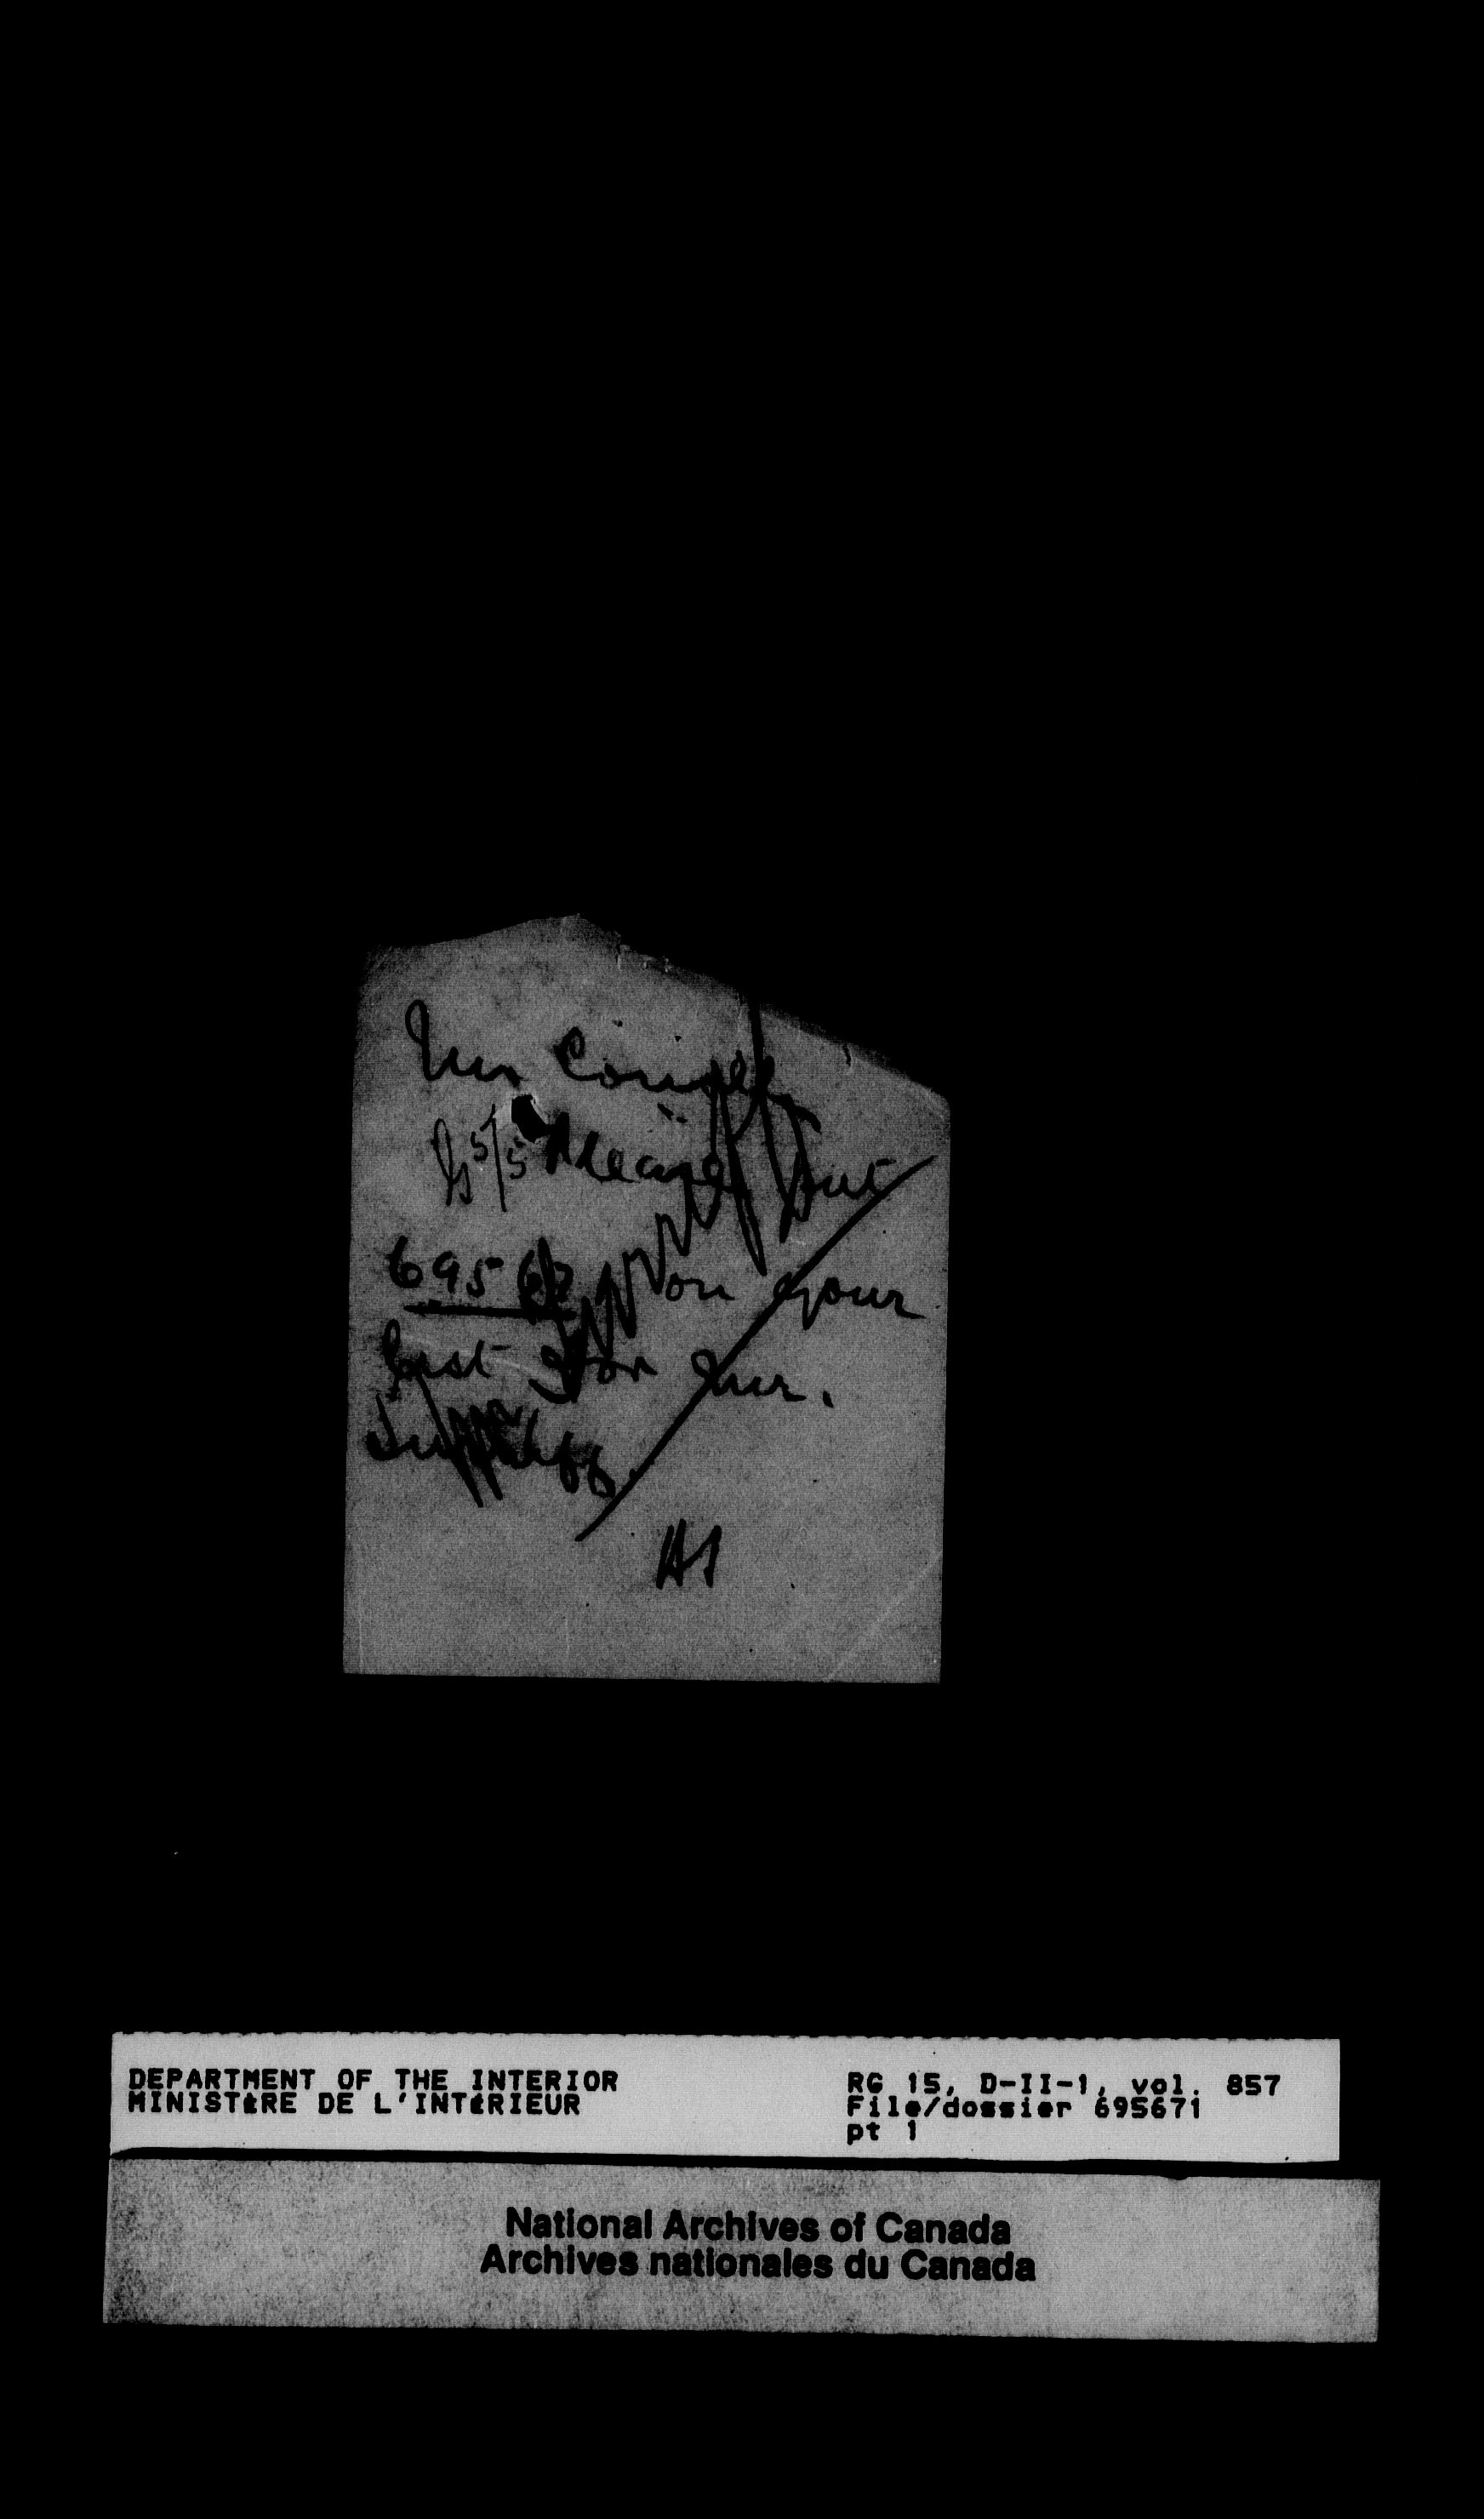 Please put
695 on your
list for me.
HS
DEPARTMENT OF THE INTERIOR
MINISTÈRE DE L'INTÉRIEUR
RG 15, D-II-1, vol. 857
File/dossier 695671
pt 1
National Archives of Canada
Archives nationales du Canada